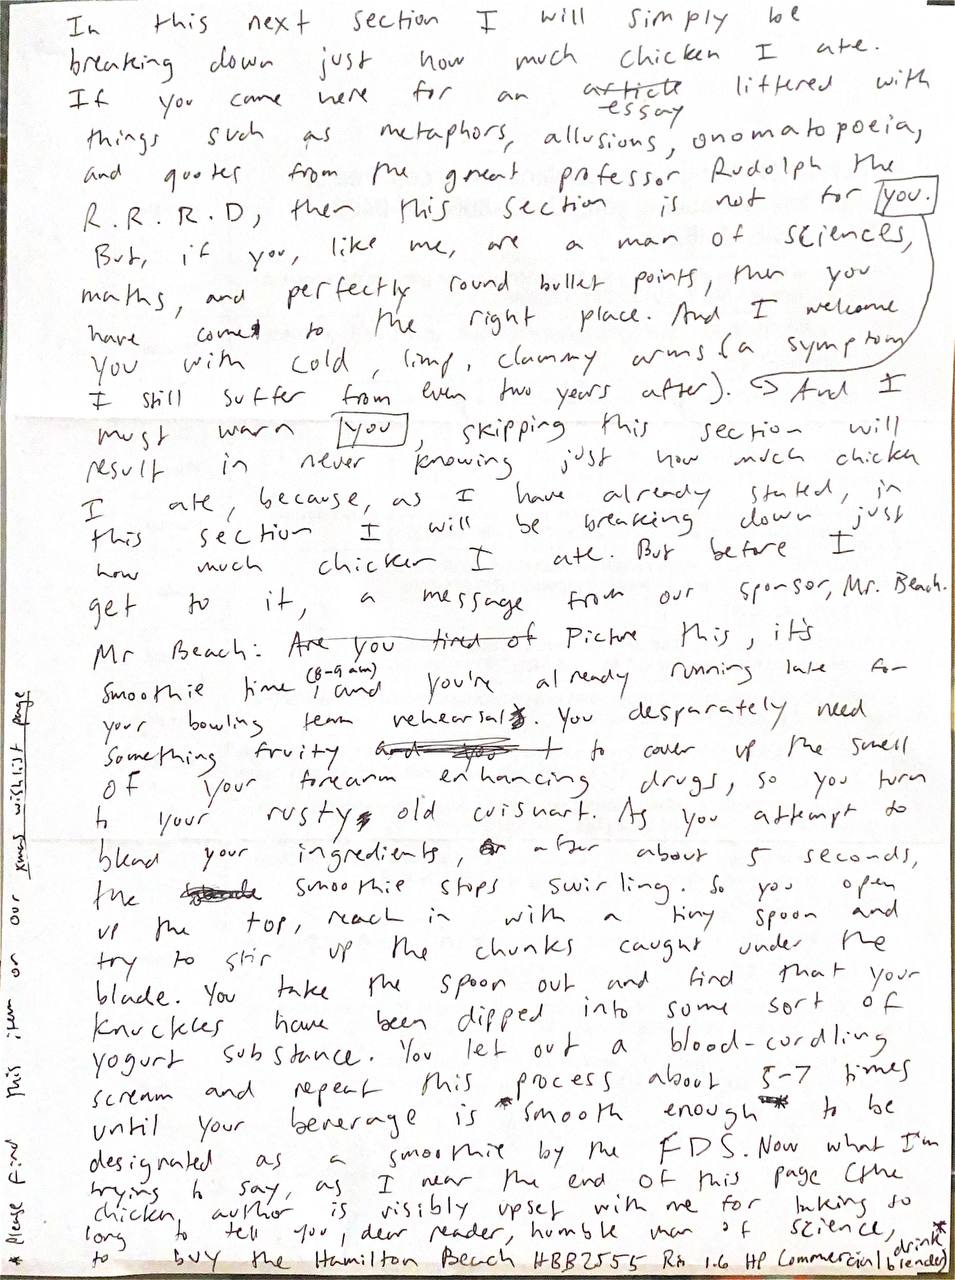 In this next section I will simply be
breaking down just how much chicken I ate.
If you came here for an article essay littered with
things such as metaphors, allusions, onomatopoeia,
and quotes from the great professor Rudolph the
R.R.R.D, then this section is not for you.
But, if you, like me, are a man of sciences,
maths, and perfectly round bullet points, then you
have come to the right place. And I welcome
you with cold, limp, clammy arms (a symptom
I still suffer from even two years after). → And I
must warn you, skipping this section will
result in never knowing just how much chicken
I ate, because, as I have already stated, in
this section I will be breaking down just
how much chicken I ate. But before I
get to it, a message from our sponsor, Mr. Beach.
Mr Beach: Are you tired of Picture this, it's
smoothie time (8-9 am), and you're already running late for
your bowling team rehearsal. You desparately need
something fruity and you t to cover up the smell
of your forearm enhancing drugs, so you turn
to your rusty old cuisnart. As you attempt to
blend your ingredients, after about 5 seconds,
the smoothie stops swirling. So you open
up the top, reach in with a tiny spoon and
try to stir up the chunks caught under the
blade. You take the spoon out and find that your
knuckles have been dipped into some sort of
yogurt substance. You let out a blood-curdling
scream and repeat this process about 5-7 times
until your beverage is *smooth enough* to be
designated as a smoothie by the FDS. Now what I'm
trying to say, as I near the end of this page (the
chicken author is visibly upset with me for taking so
long to tell you, dear reader, humble man of science,
to buy the Hamilton Beach HBB2555 Rio 1.6 HP Commercial drink blender)*
* Please find this item on our xmas wishlist page